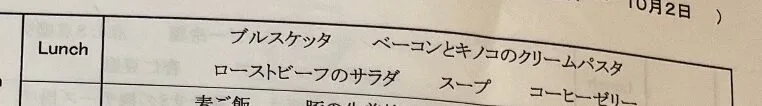 10月2日 )
Lunch
ブルスケッタ ベーコンとキノコのクリームパスタ
ローストビーフのサラダ スープ コーヒーゼリー
麦ご飯